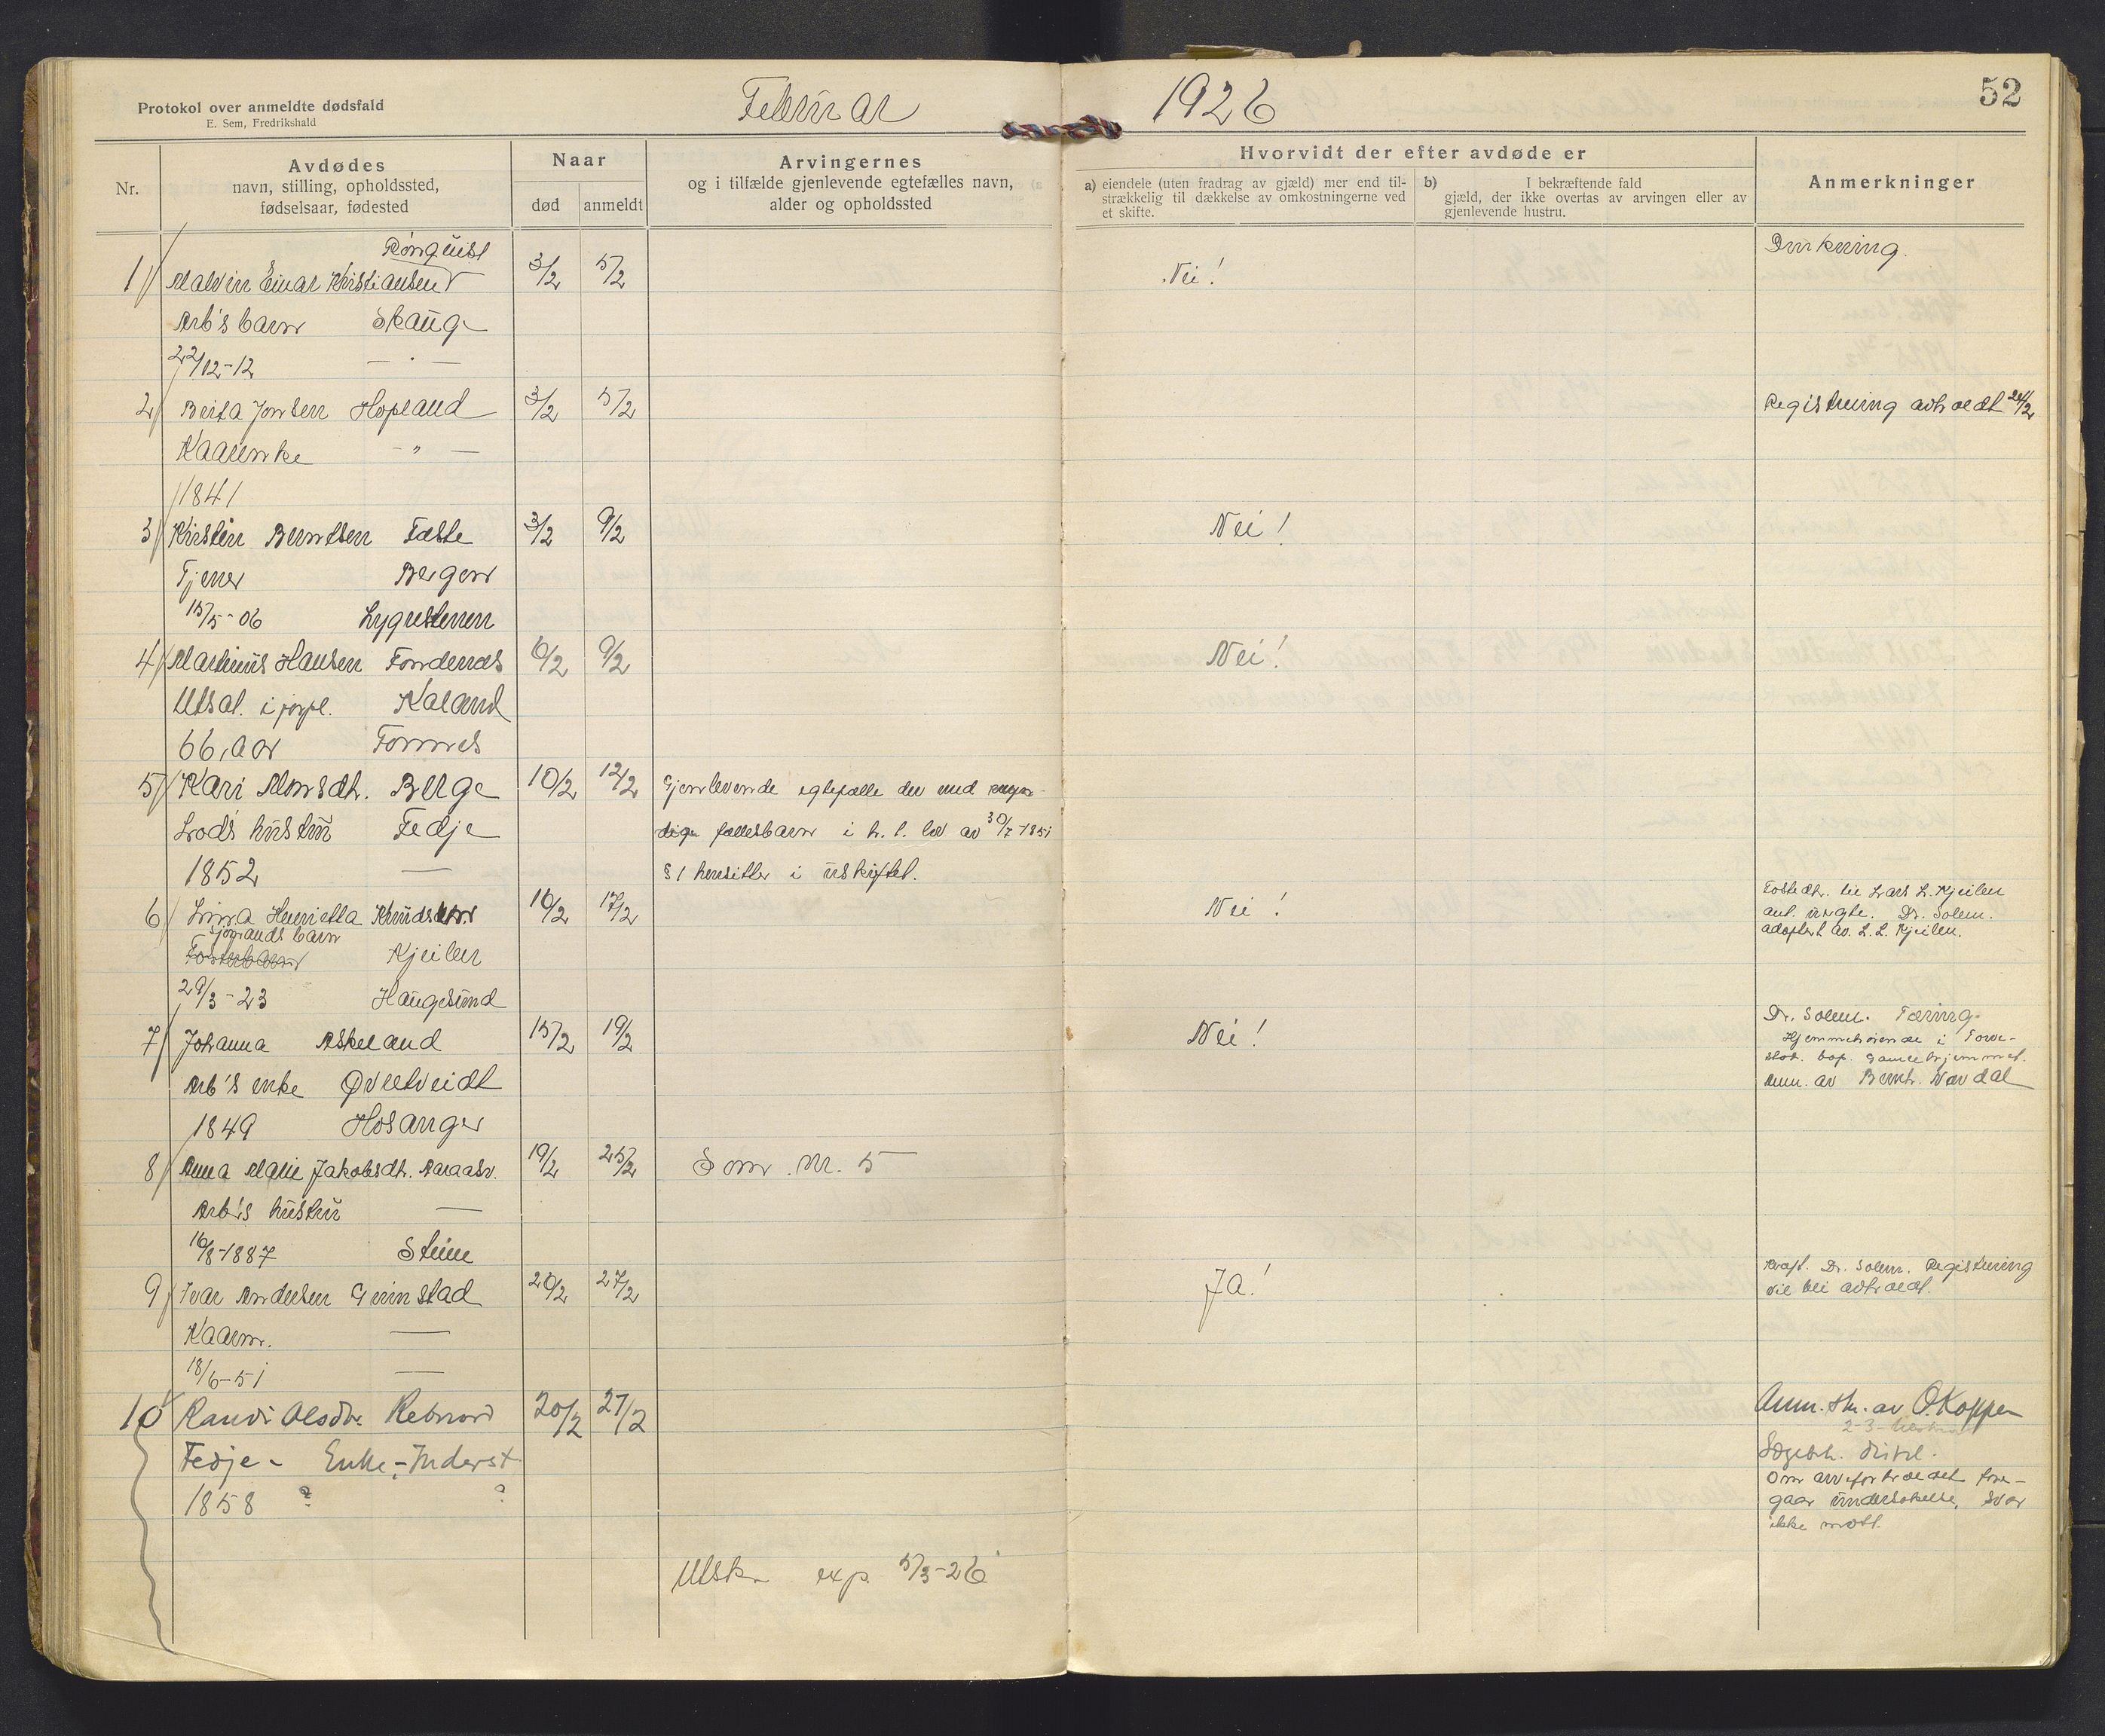 Protokol over anmeldte dødsfald
E. Sem, Fredrikshald
Februar 1926
52
Nr.
Avdødes
navn, stilling, opholdssted,
fødselsaar, fødested
Naar
død
anmeldt
Arvingernes
og i tilfælde gjenlevende egtefælles navn,
alder og opholdssted
Hvorvidt der efter avdøde er
a) eiendele (uten fradrag av gjæld) mer end til-
strækkelig til dækkelse av omkostningerne ved
et skifte.
b) I bekræftende fald
gjæld, der ikke overtas av arvingen eller av
gjenlevende hustru.
Anmerkninger
Rönquist
1/ Malvin Einar Kristiansen 3/2 5/2 Nei! Drukning.
Arb's barn Skauge
22/12-12 — " —
2/ Brita Jonsen Hopland 3/2 5/2 Registrering avholdt 24/2
Kaarenke — " —
1841
3/ Kirsten Berntsen Fæste 3/2 9/2 Nei!
Tjener Bergen
15/5-06 Lygrestenen
4/ Martinus Hansen Fondenæs 6/2 9/2 Nei!
Utsal. i jernv. Kaland
66, aar Fonnes
5/ Kari Monsdtr. Berge 10/2 12/2 Gjenlevende egtefælle der med myn-
Lods hustru Fedje dige fællesbarn i h. t. lov av 30/7-1851
1852 — § 1 hensitter i uskiftet.
6/ Linna Henrietta Knudsen 10/2 17/2 Nei! Fostedtr. til Lars L. Kjeilen
sjømands barn ant. uegte. Dr. Solem.
Fosterbarn Kjeilen adoptert av. L. L. Kjeilen.
29/3-23 Haugesund
7/ Johanna Askeland 15/2 19/2 Nei! Dr. Solem. Tæring.
Hjemmehørende i
Arb's enke Øvretveidt gamlehjemmet.
Anm. av Bernh. Nævdal
1849 Hosanger
8/ Anna Malie Jakobsdtr. Aaraasv. 19/2 25/2 Som nr. 5
Arb's hustru —
16/8-1887 Steine
9/ Ivar Andersen Grimstad 20/2 27/2 Ja! Kræft. Dr. Solem. Registrering
vil bli avholdt.
Kaarm. —
18/6-51 —
10 Randi Olsdtr. Rebnord 20/2 27/2 Anm. str. av O. Koppen
Fedje - Enke, - Inderst
1858 ? ?
Om arveforholdet fore-
gaar undersøkelse, svar
ikke mott.
Utskr. exp. 5/3-26